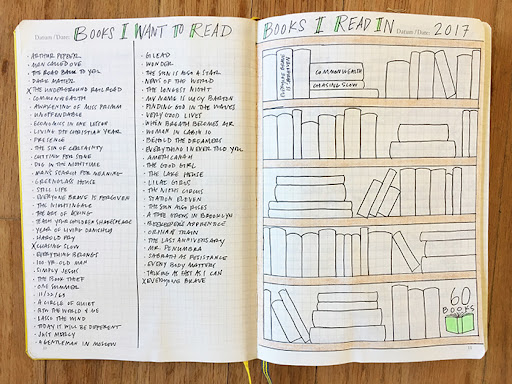 Datum / Date:
BOOKS I WANT TO READ
· ARTHUR PEPPER
· MAN CALLED OVE
· THE ROAD BACK TO YOU
· DARK MATTER
X THE UNDERGROUND RAILROAD
· COMMONWEALTH
· AWAKENING OF MISS PRIMM
· UNOFFENDABLE
· ECONOMICS IN ONE LESSON
· LIVING THE CHRISTIAN YEAR
· PRESENCE
· THE SIN OF CERTAINTY
· CUTTING FOR STONE
· DOG IN THE NIGHTTIME
· MAN'S SEARCH FOR MEANING
· GREENGLASS HOUSE
· STILL LIFE
· EVERYONE BRAVE IS FORGIVEN
· THE NIGHTINGALE
· THE ART OF ASKING
· TEACH YOUR CHILDREN SHAKESPEARE
· YEAR OF LIVING DANISHLY
· HAROLD FRY
X CHASING SLOW
· EVERYTHING BELONGS
· 100-YR-OLD MAN
· SIMPLY JESUS
· THE BOOK THIEF
· ONE SUMMER
· 11/22/63
· A CIRCLE OF QUIET
· BTW THE WORLD & ME
· LASSO THE WIND
· TODAY IT WILL BE DIFFERENT
· JUST MERCY
· A GENTLEMAN IN MOSCOW
· GILEAD
· WONDER
· THE SUN IS ALSO A STAR
· NEWS OF THE WORLD
· THE LONGEST NIGHT
· MY NAME IS LUCY BARTON
· FINDING GOD IN THE WAVES
· VERY GOOD LIVES
· WHEN BREATH BECOMES AIR
· WOMAN IN CABIN 10
· BEHOLD THE DREAMERS
· EVERYTHING I NEVER TOLD YOU
· THE GOOD GIRL
· THE LAKE HOUSE
· LILAC GIRLS
· THE NIGHT CIRCUS
· STATION ELEVEN
· THE SUN ALSO RISES
· A TREE GROWS IN BROOKLYN
· BEEKEEPER'S APPRENTICE
· ORPHAN TRAIN
· THE LAST ANNIVERSARY
· MR. PENUMBRA
· SABBATH AS RESISTANCE
· EVERY BODY MATTERS
· TALKING AS FAST AS I CAN
X EVERYONE BRAVE
BOOKS I READ IN
Datum / Date:
2017
EVERYONE BRAVE
IS FORGIVEN
COMMONWEALTH
CHASING SLOW
60
BOOKS